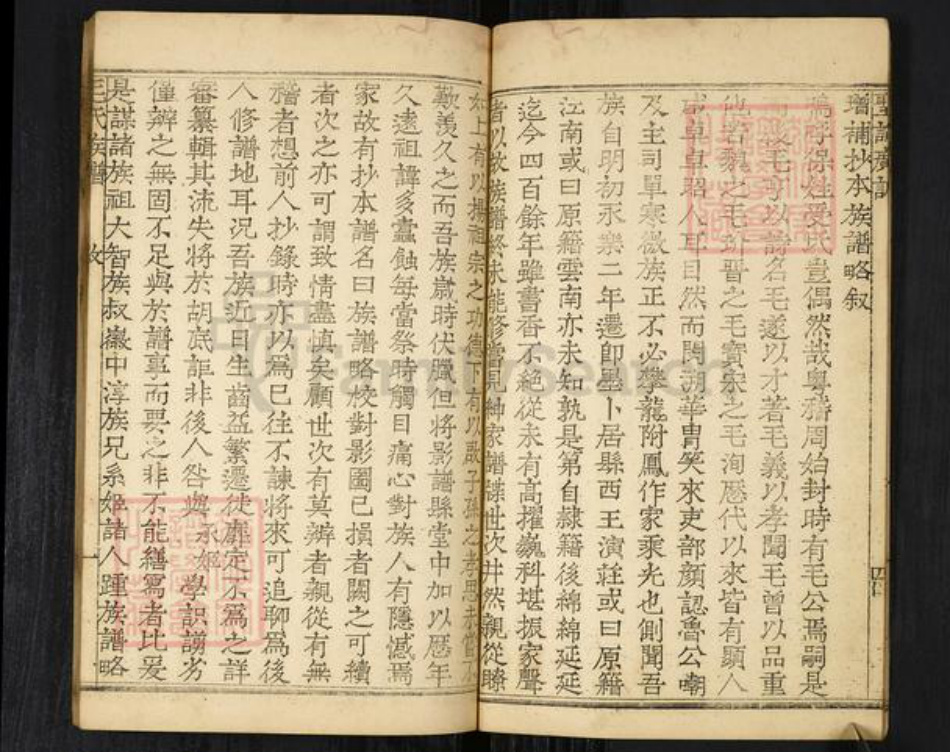 增補抄本族譜略叙
嗚呼保姓受氏豈偶然哉粵稽周始封時有毛公焉嗣是
毛以詩名毛遂以才著毛義以孝聞毛曾以品重
他若魏之毛玠晉之毛寳宋之毛洵歷代以來皆有顯人
或卓卓昭人耳目然而閥溯華胄笑來吏部顏認魯公嘲
及主司單寒微族正不必攀龍附鳳作家乘光也側聞吾
族自明初永樂二年遷即墨卜居縣西王演莊或曰原籍
江南或曰原籍雲南亦未知孰是第自隸籍後綿綿延延
迄今四百餘年雖書香不絕從未有高擢巍科堪振家聲
者以故族譜終未能修嘗見紳家譜牒世次井然親從瞭
如上有以揚祖宗之功德下有以啟子孫之孝思未嘗不
歎羨久之而吾族歲時伏臘但將影譜縣堂中加以歷年
久遠祖諱多蠹蝕每當祭時觸目痛心對族人有隱憾焉
家故有抄本譜名曰族譜略校對影圖已損者闕之可續
者次之亦可謂致情盡慎矣顧世次有莫辨者親從有無
稽者想前人抄錄時亦以爲已往不諫將來可追聊爲後
人修譜地耳况吾族近日生齒益繁遷徙靡定不爲之詳
審纂輯其流失將於胡底詎非後人咎與承姬學識謭劣
僅辨之無固不足與於譜事而要之非不能繕寫者比爰
是謀諸族祖大智族叔嶽中淳族兄系姬諸人踵族譜略
王氏族譜 敘